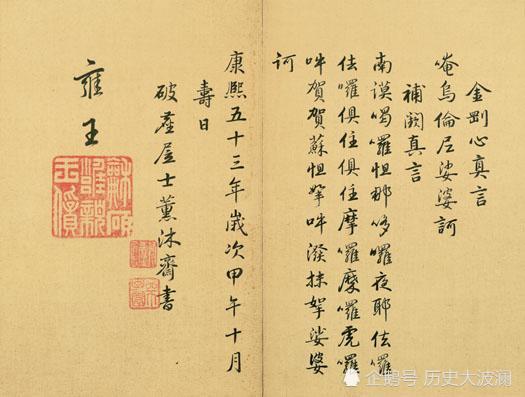 金剛心真言
唵烏倫尼娑婆訶
補闕真言
南謨喝囉怛那哆囉夜耶佉囉
佉囉俱住俱住摩囉摩囉虎囉
吽賀賀蘇怛拏吽潑抹拏娑婆
訶
康熙五十三年歲次甲午十月
壽日
破塵居士薰沐齋書
雍王
企鹅号 历史大波澜